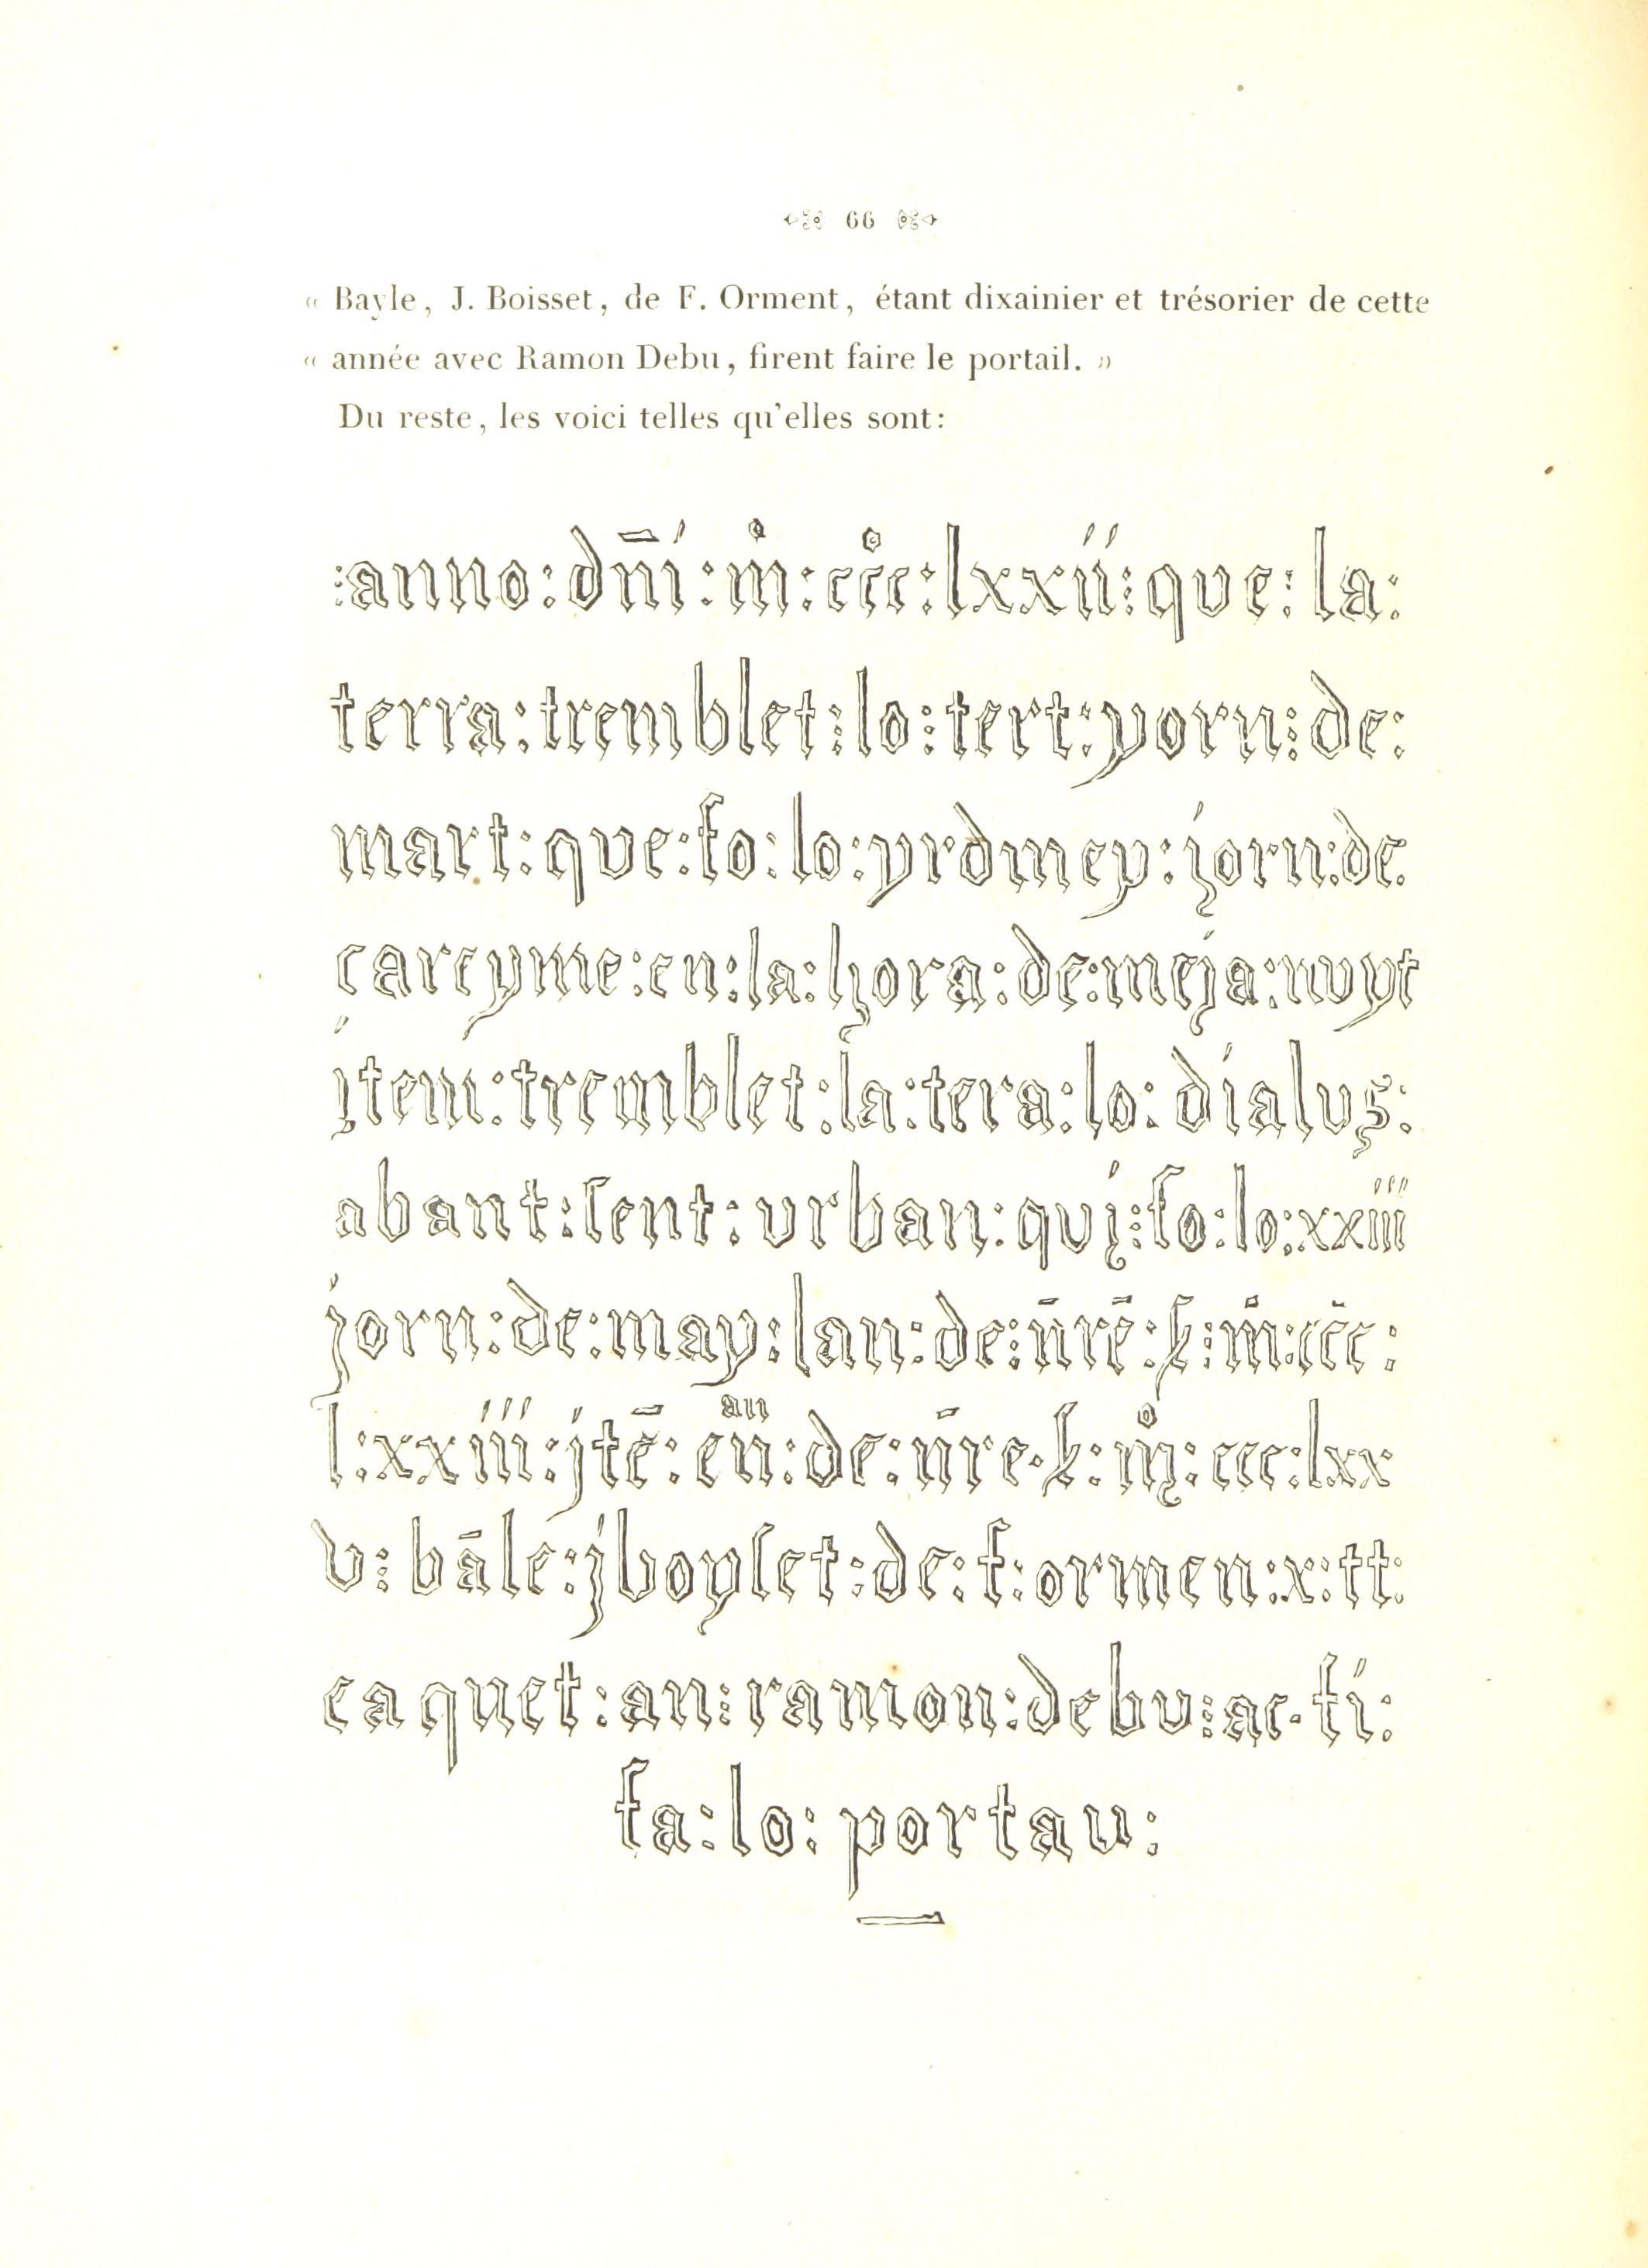 66
« Bayle, J. Boisset, de F. Orment, étant dixainier et trésorier de cette
« année avec Ramon Debu, firent faire le portail. »
Du reste, les voici telles qu'elles sont:
:anno:dm̄i:m̊:cc̊c:lxxii:que:la:
terra:tremblet:lo:tert:yorn:de:
mart:que:fo:lo:yrdmey:jorn:de.
careyme:en:la:hora:de:meja:nuyt
jtem:tremblet:la:tera:lo:dialus:
abant:sent:urban:quj:fo:lo:xxiii
jorn:de:may:lan:de:n̄rē:k:m̊:ccc:
l:xxiii:jtē:en̄:an:de:n̄re.k:m̊:ccc:lxx
v:bāle:jboyset:de:f:ormen:x:tt:
caquet:an:ramon:debu:ac.fi:
fa:lo:portau: